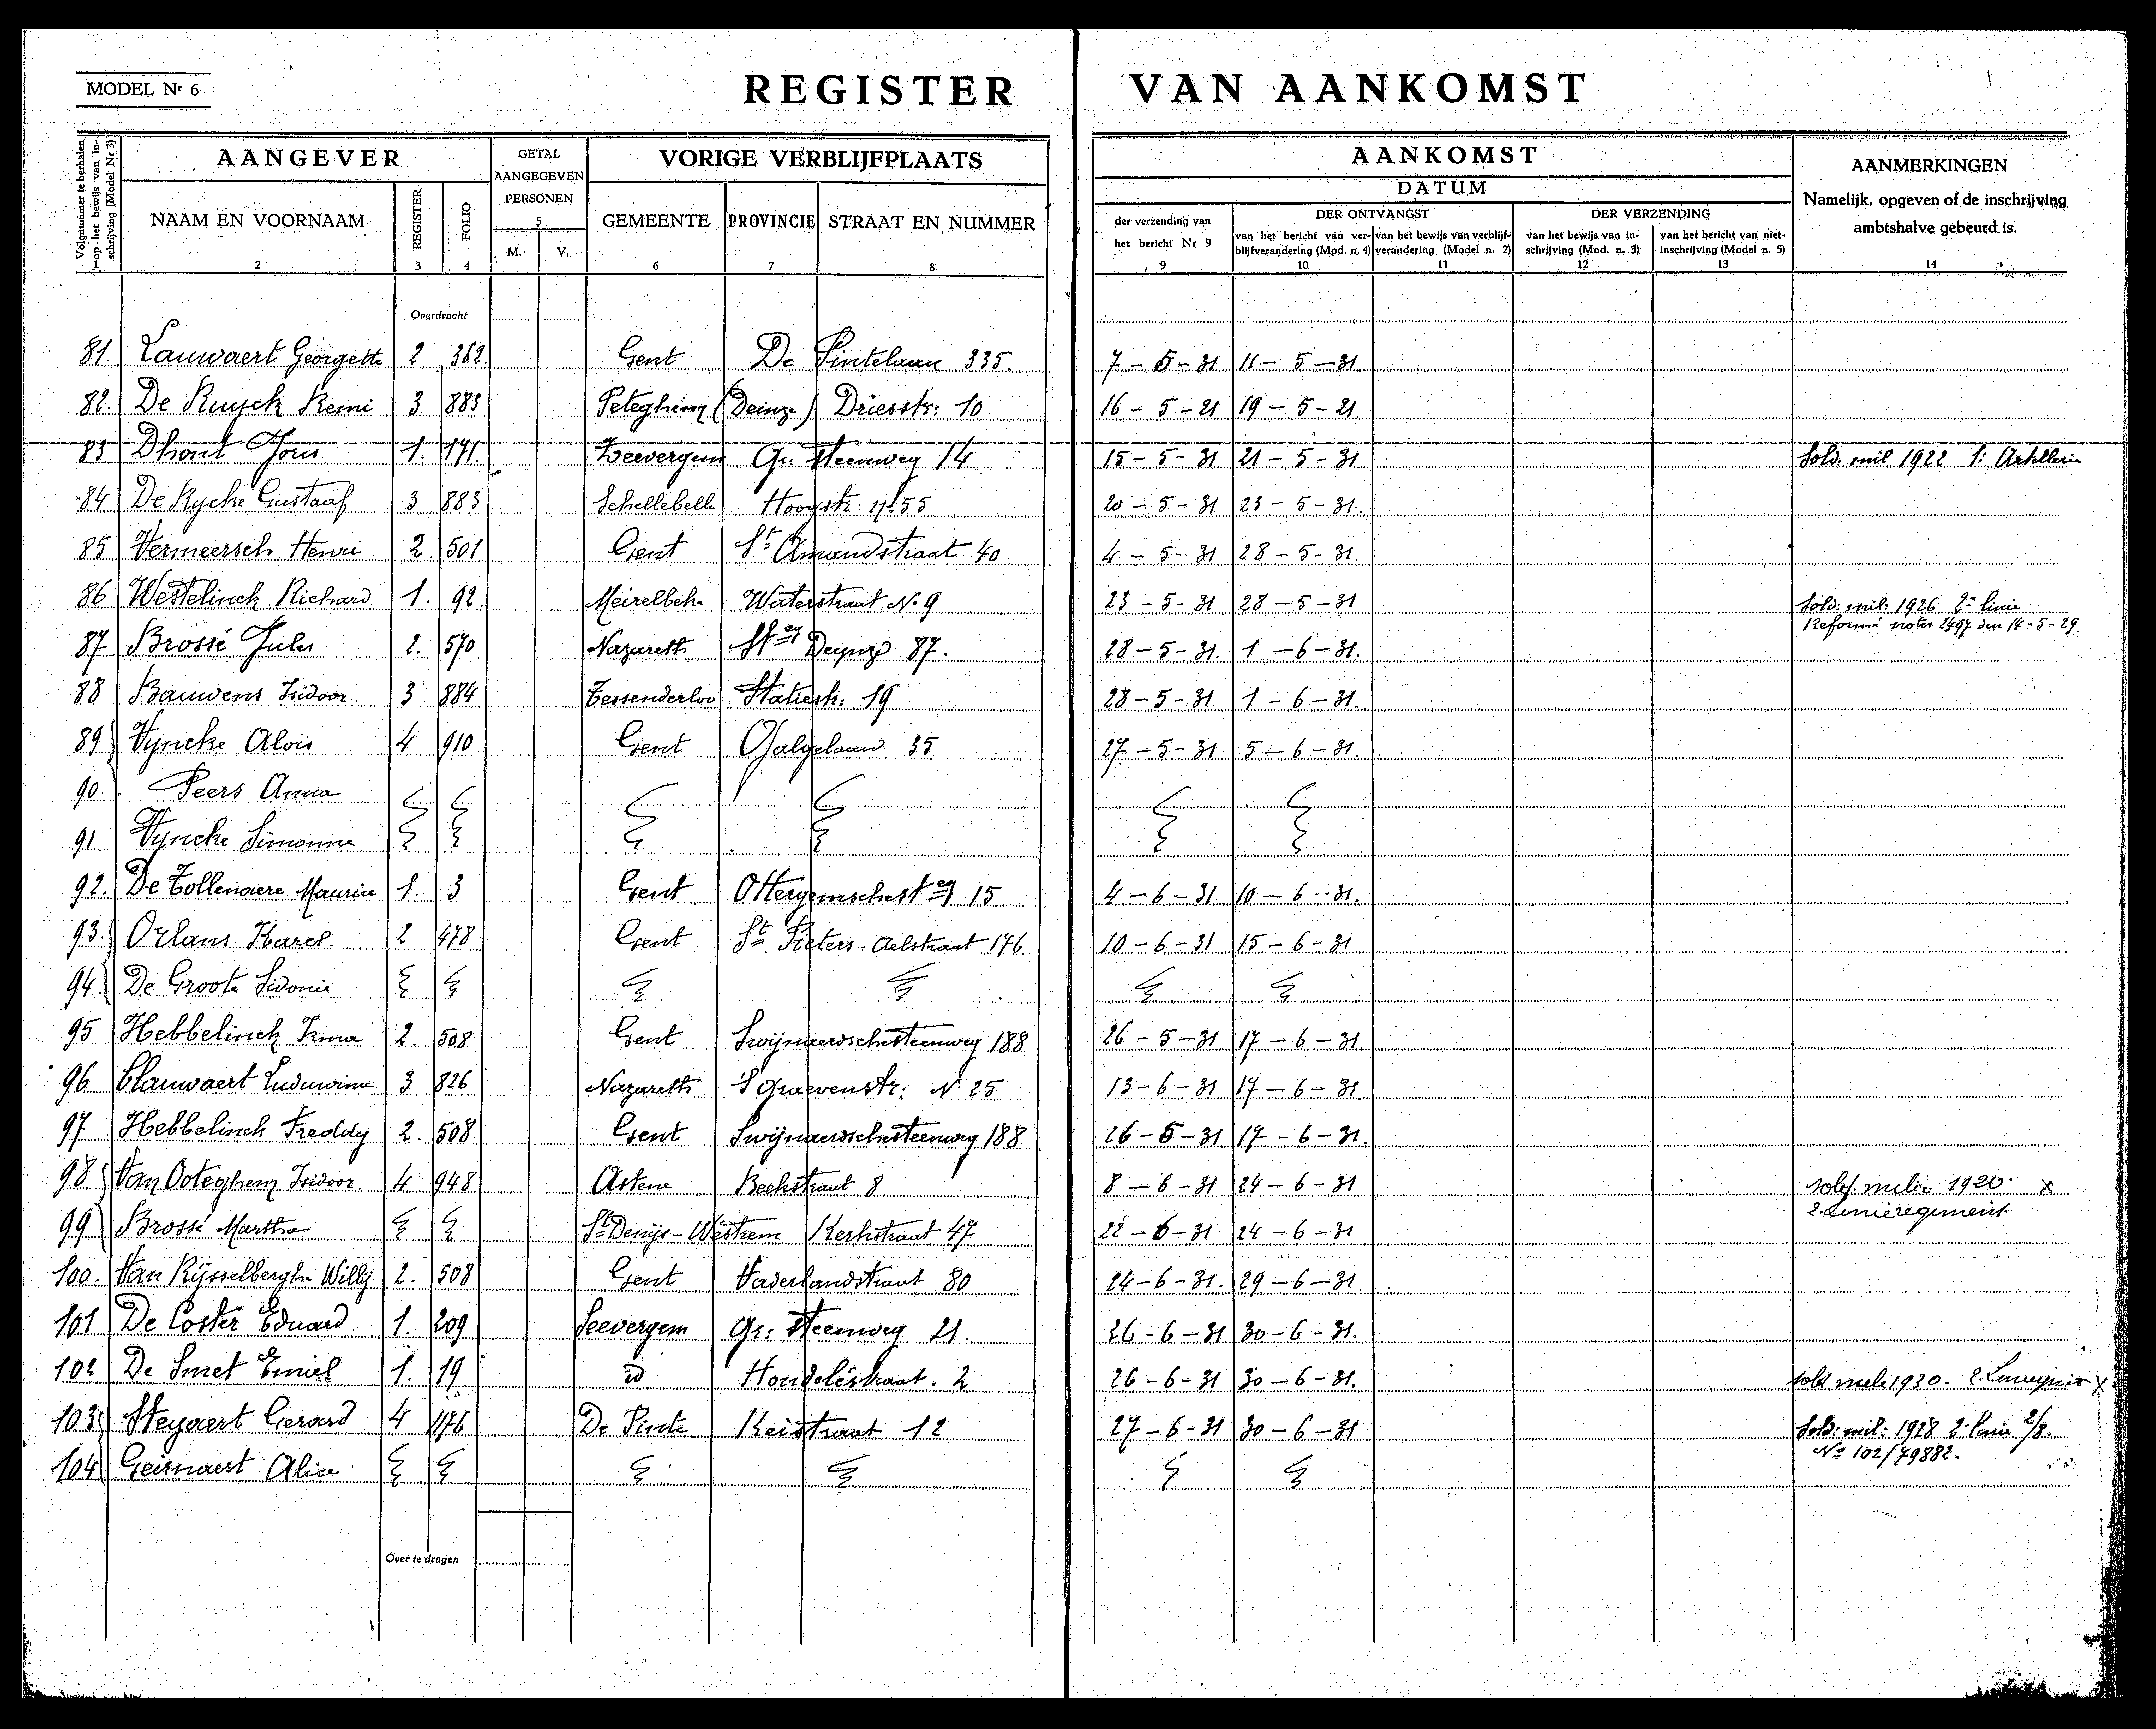 MODEL Nr 6
REGISTER VAN AANKOMST
Volgnummer te herhalen op het bewijs van inschrijving (Model Nr 3)
AANGEVER
GETAL AANGEGEVEN PERSONEN
5
VORIGE VERBLIJFPLAATS
AANKOMST
DATUM
AANMERKINGEN
Namelijk, opgeven of de inschrijving
ambtshalve gebeurd is.
NAAM EN VOORNAAM REGISTER FOLIO M. V. GEMEENTE PROVINCIE STRAAT EN NUMMER
der verzending van het bericht Nr 9
DER ONTVANGST
van het bericht van verblijfverandering (Mod. n. 4) van het bewijs van verblijfverandering (Model n. 2)
DER VERZENDING
van het bewijs van inschrijving (Mod. n. 3) van het bericht van niet-inschrijving (Model n. 5)
1 2 3 4 6 7 8 9 10 11 12 13 14
Overdracht
81. Lauwaert Georgette 2 362. Gent De Pintelaan 335. 7 - 5 - 31 11 - 5 - 31.
82. De Ruyck Remi 3 883 Peteghem (Deinze) Driesstr: 10 16 - 5 - 21 19 - 5 - 21.
83 Dhont Joris 1. 171. Zeevergem Gr: Steenweg 14 15 - 5 - 31 21 - 5 - 31 Sold. mil 1922 1: Artillerie
84 De Rycke Gustaaf 3 883 Schellebelle Hoogstr: nr 55 20 - 5 - 31 23 - 5 - 31.
85 Vermeersch Henri 2. 501 Gent St Amandstraat 40 4 - 5 - 31 28 - 5 - 31.
86 Westelinck Richard 1. 92. Meirelbeke Waterstraat No 9 23 - 5 - 31 28 - 5 - 31 Sold: mil: 1926 2e linie
Reformé notes 2497 den 14-5-29.
87 Brossé Jules 2. 570 Nazareth Steeg Deynze 87. 28 - 5 - 31. 1 - 6 - 31.
88 Bauwens Isidoor 3 884 Tessenderloo Statiestr: 19 28 - 5 - 31 1 - 6 - 31.
89 Vyncke Aloïs 4 910 Gent Galgelaan 35 27 - 5 - 31 5 - 6 - 31.
90. Peers Anna
91 Vyncke Simonne
92. De Tollenaere Maurice 1. 3 Gent Ottergemschesteeg 15 4 - 6 - 31 10 - 6 - 31.
93. Orlans Karel. 2 478 Gent St. Pieters-Aelstraat 176. 10 - 6 - 31 15 - 6 - 31
94. De Groote Sidonie
95 Hebbelinck Irma 2. 508 Gent Swijnaerdschesteenweg 188 26 - 5 - 31 17 - 6 - 31
96 Clauwaert Ludewina 3 826 Nazareth S Graevenstr: N. 25 13 - 6 - 31 17 - 6 - 31
97 Hebbelinck Freddy 2. 508 Gent Swijnaerdschesteenweg 188 26 - 5 - 31 17 - 6 - 31.
98 Van Ooteghem Isidoor. 4 948 Astene Beekstraat 8 8 - 6 - 31 24 - 6 - 31 sold. milie 1920. x
2. Linieregiment.
99 Brossé Martha St Denijs-Westrem Kerkstraat 47 22 - 6 - 31 24 - 6 - 31
100. Van Rijsselberghe Willy 2. 508 Gent Vaderlandstraat 80 24 - 6 - 31. 29 - 6 - 31.
101 De Coster Eduard. 1. 209 Seevergem Gr: Steenweg 21. 26 - 6 - 31 30 - 6 - 31.
102 De Smet Emiel 1. 19 id Hondelestraat. 2 26 - 6 - 31 30 - 6 - 31. sold 1930. x
103 Steyaert Gerard 4 1176 De Pinte Keistraat 12 27 - 6 - 31 30 - 6 - 31 Sold: mil: 1928 2. linie 2/8.
No 102/79882.
104 Geirnaert Alice
Over te dragen